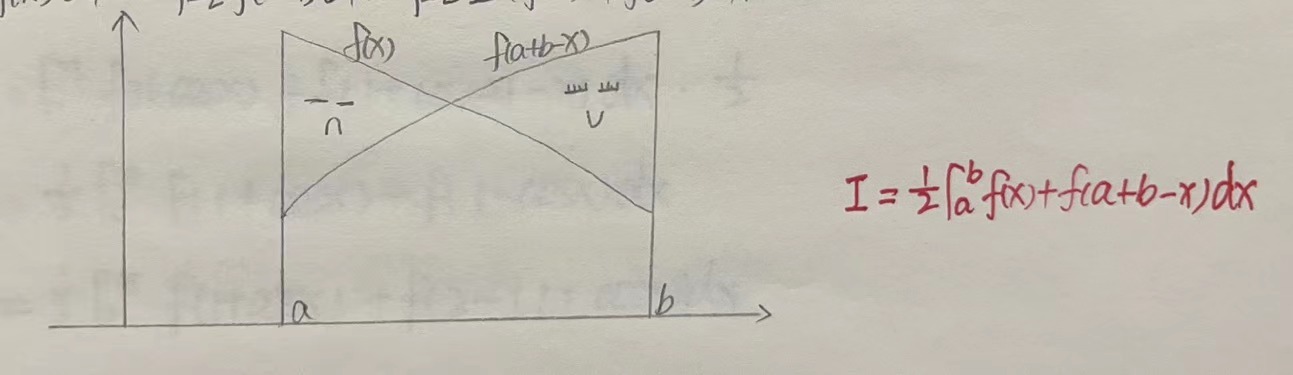 f(x)
f(a+b-x)
a
b
I = 1/2 ∫_a^b f(x)+f(a+b-x)dx